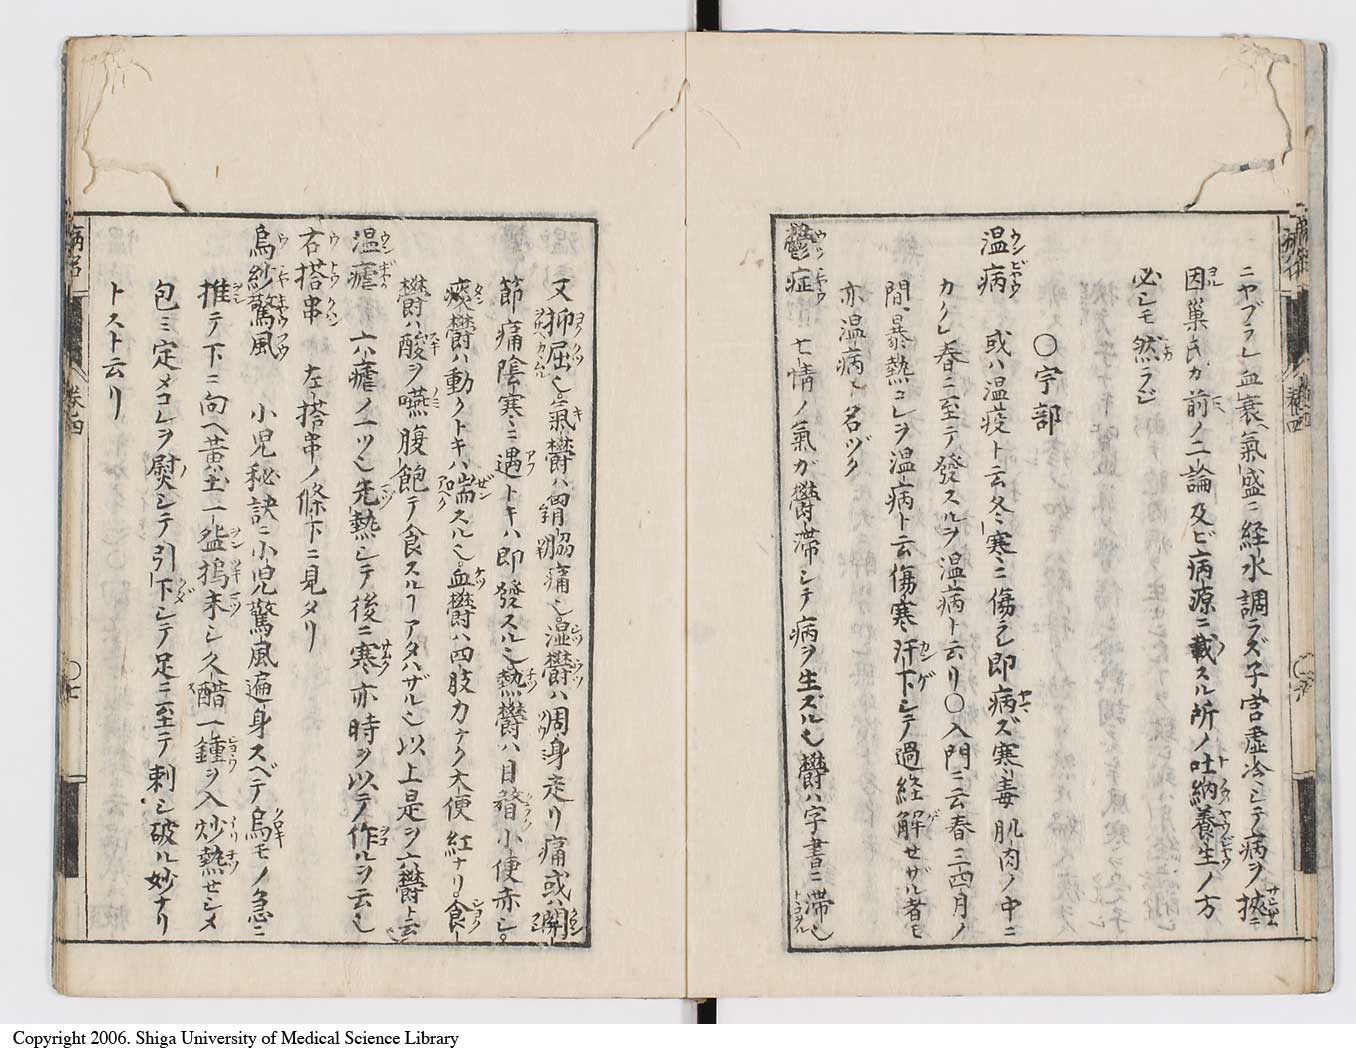 ニヤブラレ血衰ヘ氣盛ニ経水調ラズ子宮虚冷シテ病ヲ挾ニ
因ル巣氏ガ前ノ二論及ビ病源ニ載スル所ノ吐納養生ノ方
必シモ然ラズ
〇宇部
温病 或ハ温疫ト云冬寒ニ傷ラレ即病ズ寒毒肌肉ノ中ニ
カクレ春ニ至テ發スルヲ温病ト云リ〇入門ニ云春三四月ノ
間暴熱コレヲ温病ト云傷寒汗下シテ過経解セザル者モ
亦温病ト名ヅク
鬱症 七情ノ氣ガ鬱滞シテ病ヲ生ズル也鬱ハ字書ニ滞也
又抑屈也氣鬱ハ胷脇痛也湿鬱ハ周身走リ痛或ハ關
節痛陰寒ニ遇トキハ即發スル也熱鬱ハ目瞀小便赤シ
痰鬱ハ動クトキハ喘スル也血鬱ハ四肢力ナク大便紅ナリ食
鬱ハ酸ヲ嚥腹飽テ食スルヿアタハザル也以上是ヲ六鬱ト云
温瘧 六瘧ノ一ツ也先熱シテ後ニ寒亦時ヲ以テ作ルヲ云也
右搭串 左搭串ノ條下ニ見タリ
烏紗驚風 小児秘訣ニ小児驚風遍身スベテ烏モノ急ニ
推テ下ニ向ヘ黄土一盌擣末シ久醋一鍾ヲ入炒熱セシメ
包ミ定メコレヲ熨シテ引下シテ足ニ至テ刺シ破ル妙ナリ
トスト云リ
卷四
〇七
Copyright 2006. Shiga University of Medical Science Library